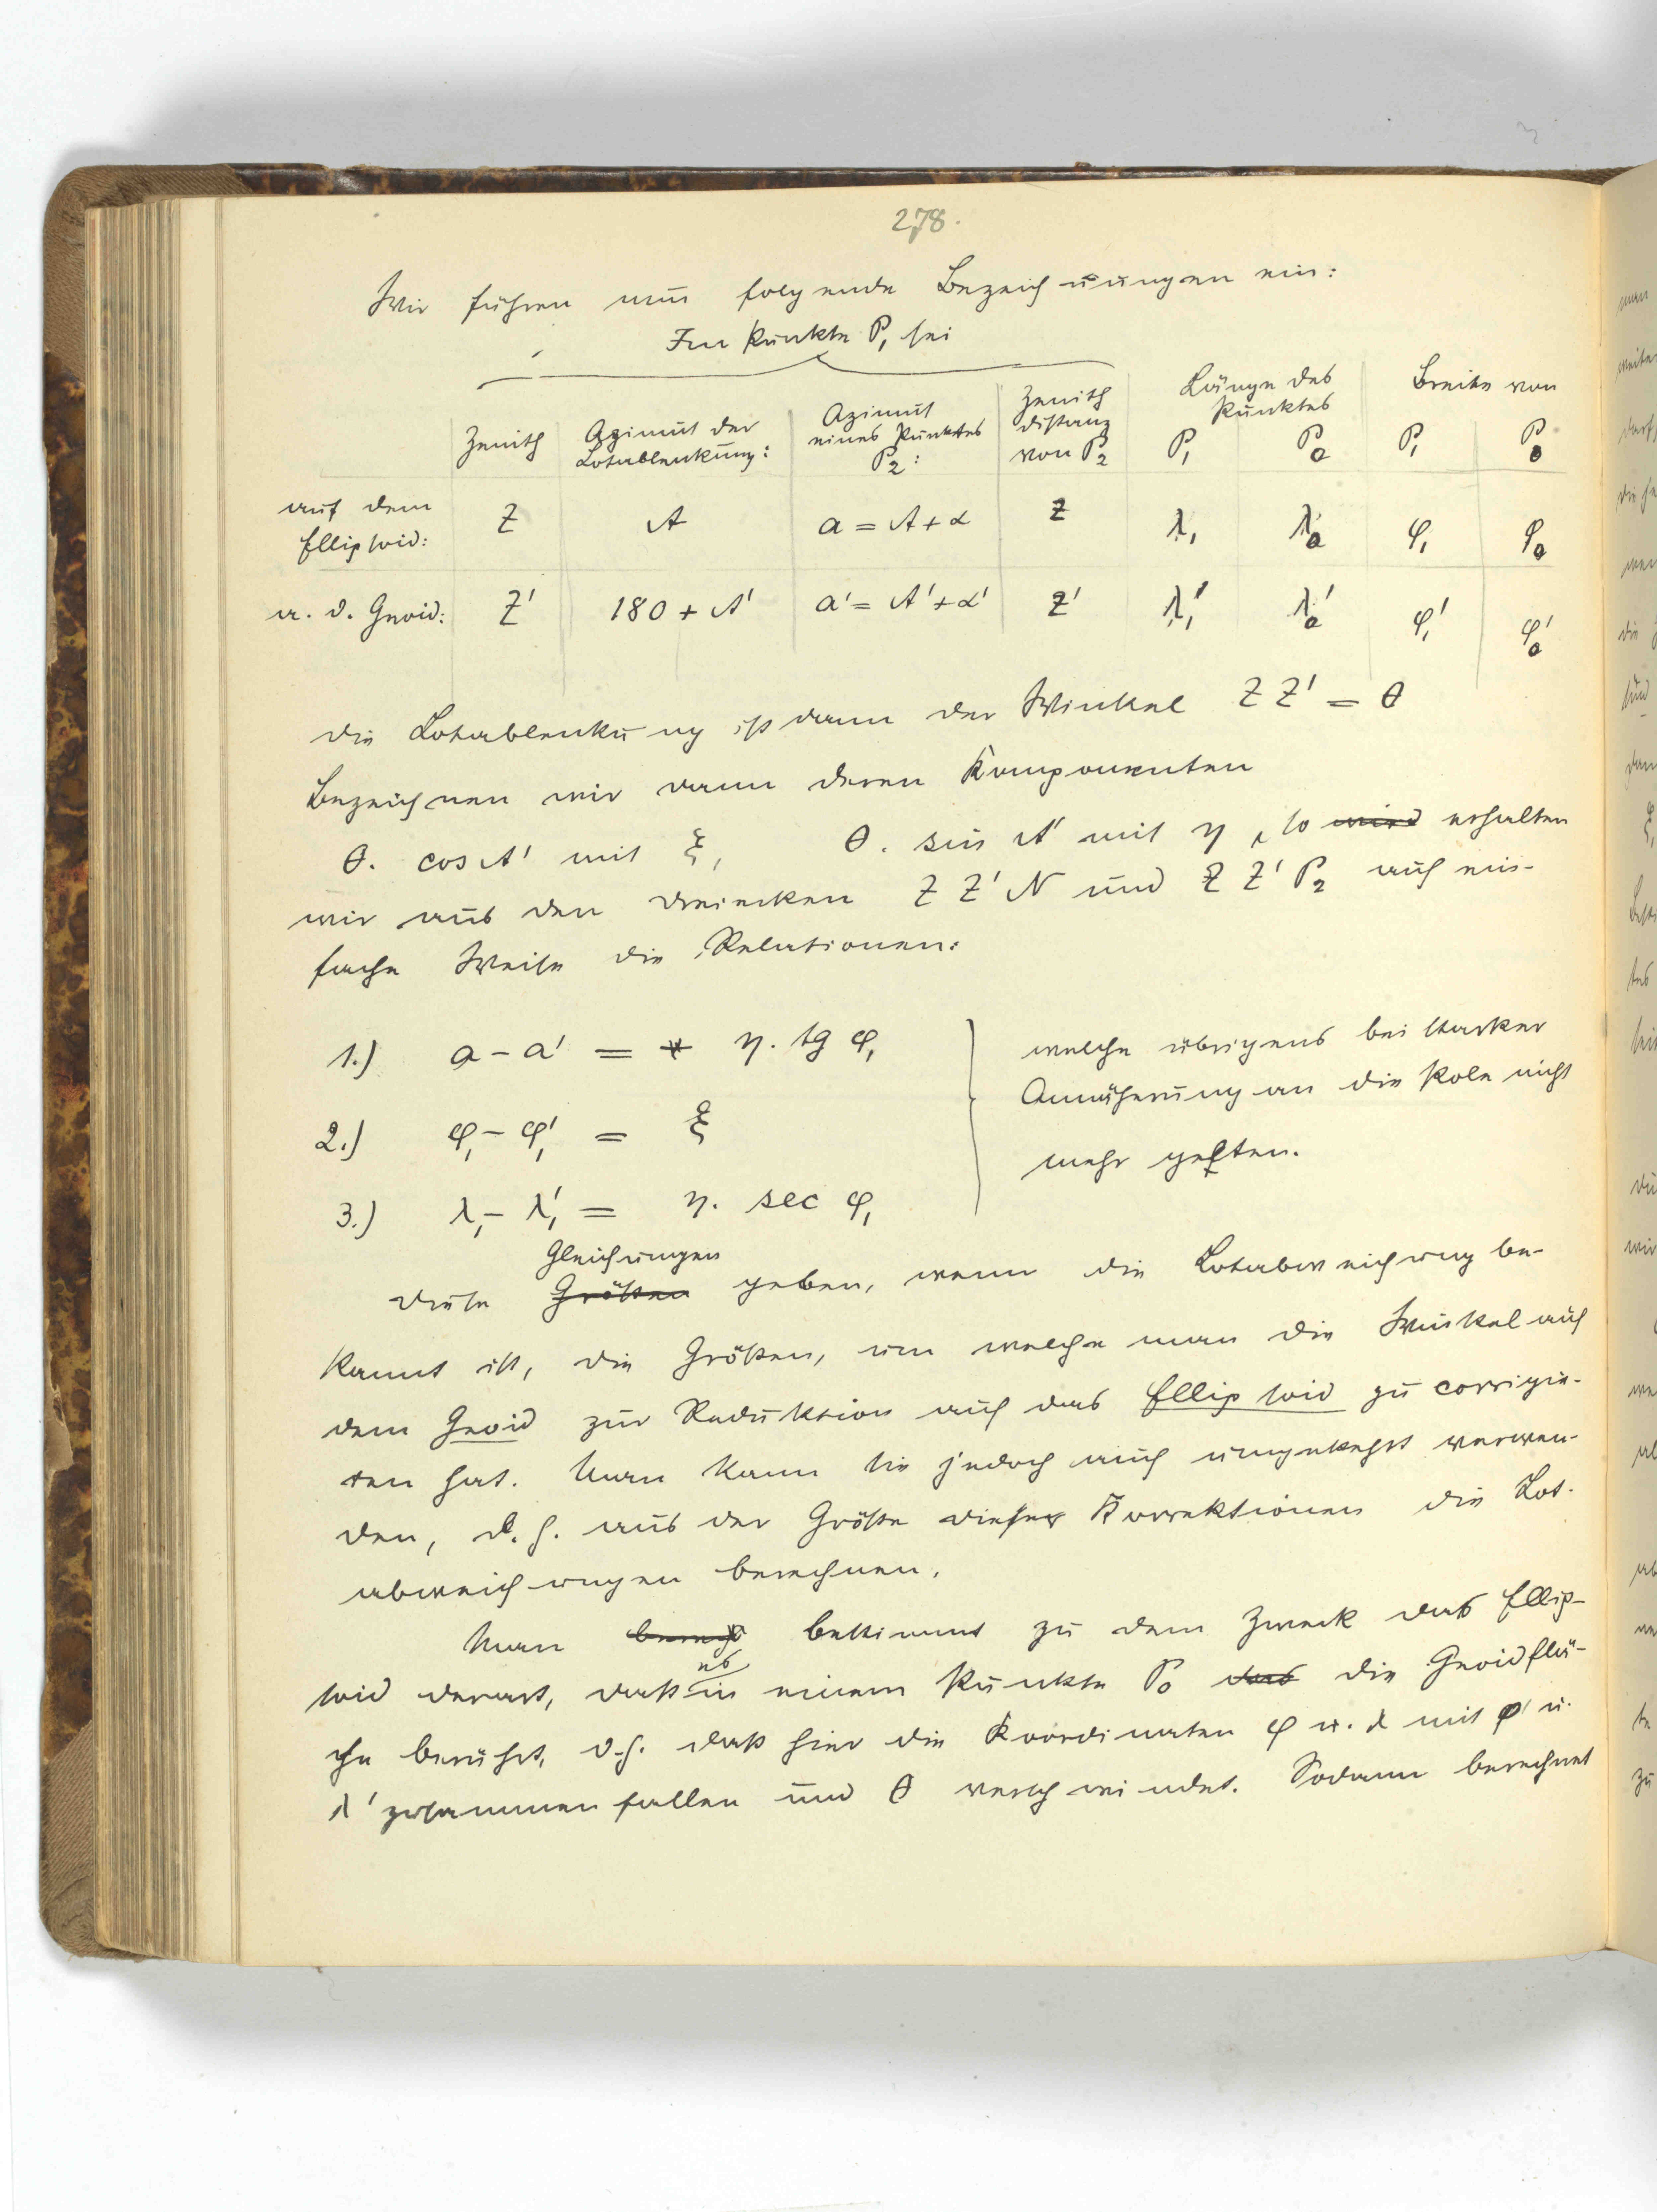 278.
Wir führen nun folgende Bezeichnungen ein:
Im Punkte P₁ sei
Zenith | Azimut der Lotablenkung: | Azimut eines Punktes P₂: | Zenith distanz von P₂ | Länge des Punktes P₁ | P₀ | Breite von P₁ | P₀
auf dem Ellipsoid: | Z | A | a = A + α | z | λ₁ | λ₀ | φ₁ | φ₀
a. d. Geoid: | Z' | 180 + A' | a' = A' + α' | z' | λ₁' | λ₀' | φ₁' | φ₀'
Die Lotablenkung ist dann der Winkel Z Z' = θ
Bezeichnen wir dann deren Komponenten
θ. cos A' mit ξ, θ. sin A' mit η, so wird erhalten
wir aus den Dreiecken Z Z' N und Z Z' P₂ auf ein-
fache Weise die Relationen:
1.) a - a' = η. tg φ₁
2.) φ₁ - φ₁' = ξ
3.) λ₁ - λ₁' = η. sec φ₁
welche übrigens bei starker
Annäherung an die Pole nicht
mehr gelten.
Gleichungen
Diese Größen geben, wenn die Lotabweichung be-
kannt ist, die Größen, um welche man die Winkel auf
dem Geoid zur Reduktion auf das Ellipsoid zu corrigie-
ren hat. Man kann sie jedoch auch umgekehrt verwen-
den, d. h. aus der Größe dieser Korrektionen die Lot-
abweichungen berechnen.
Man bestimmt zu dem Zweck das Ellip-
es
soid derart, daß in einem Punkte P₀ das die Geoidflä-
che berührt, d.h. daß hier die Koordinaten φ u. λ mit φ' u.
λ' zusammenfallen und θ verschwindet. Sodann berechnet